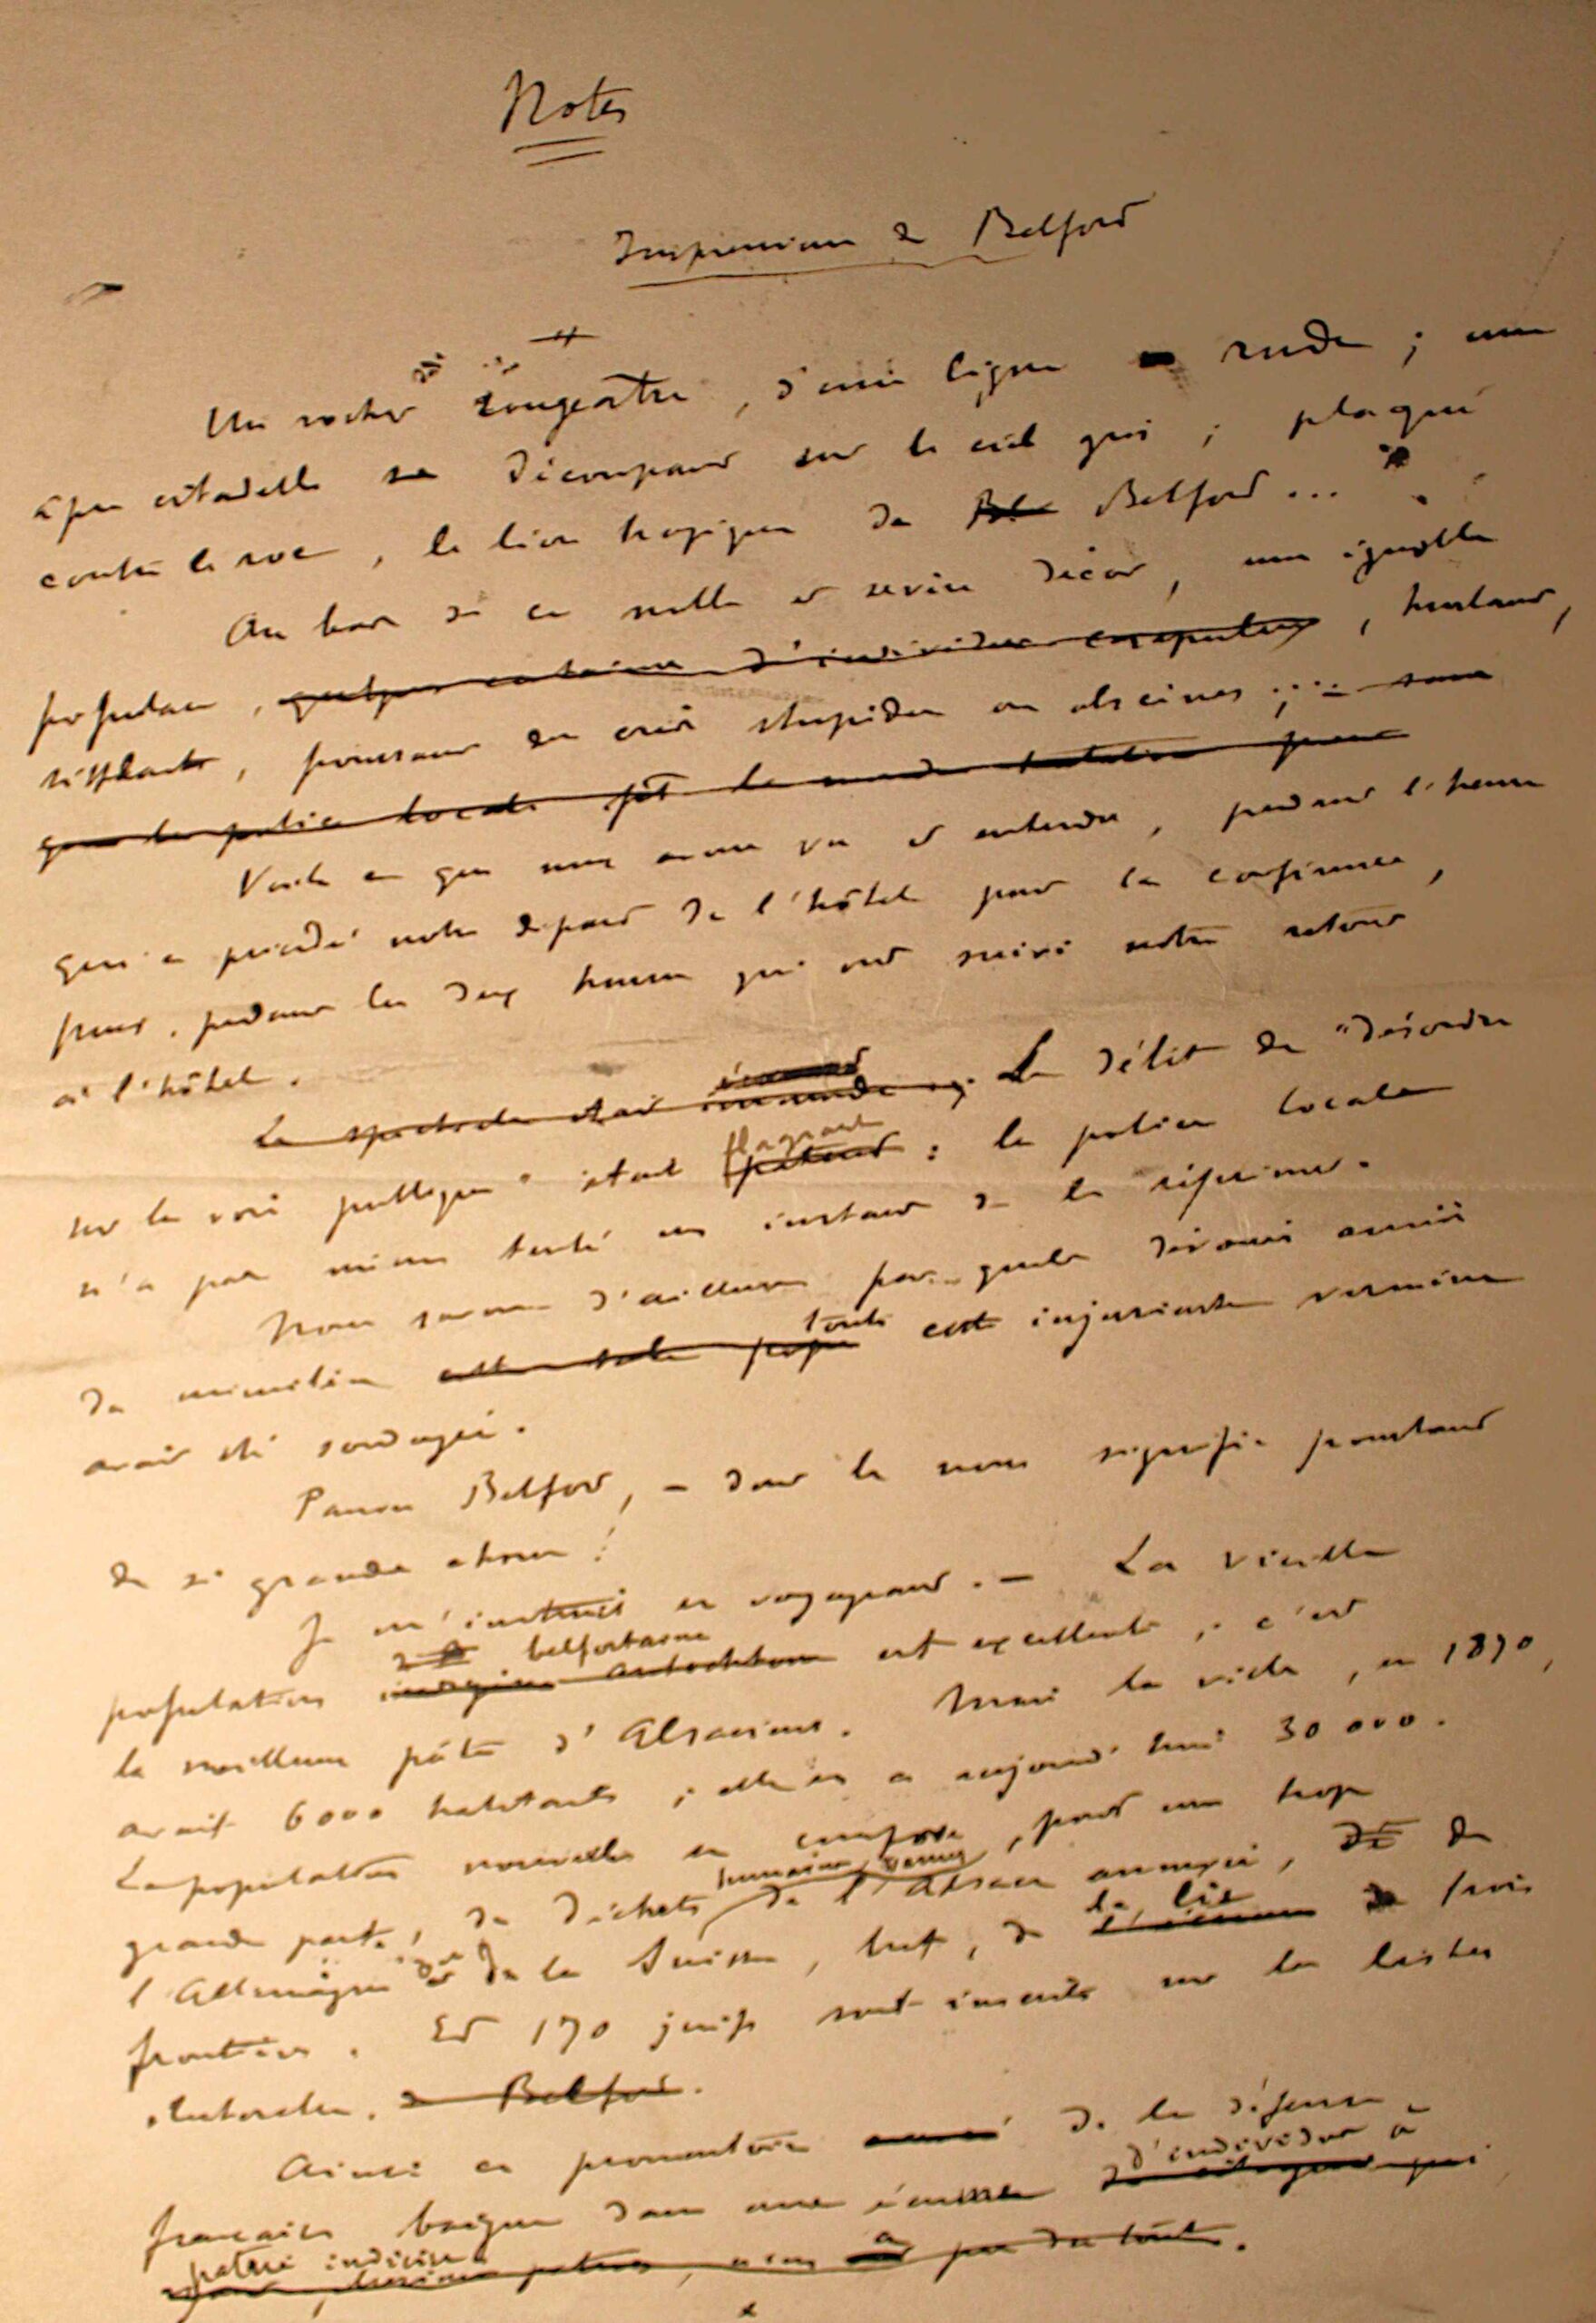 Notes
Impressions de Belfort
Un rocher rougeâtre, d'une ligne rude ; une
âpre citadelle se découpant sur le ciel gris ; plaqué
contre le roc, le lion tragique de Belfort...
Au bas de ce noble et sévère décor, une ignoble
populace, quelques centaines d'individus crapuleux, hurlant,
sifflant, poussant des cris stupides ou obscènes ; sans
que la police locale fît la moindre tentative pour
Voilà ce que nous avons vu et entendu, pendant l'heure
qui a précédé notre départ de l'hôtel pour la conférence,
puis, pendant les deux heures qui ont suivi notre retour
à l'hôtel.
Le spectacle était immonde Le délit de "désordre
sur la voie publique" était flagrant : la police locale
n'a pas même tenté un instant de le réprimer.
Nous savons d'ailleurs par quels dévoués amis
du ministère toute cette injurieuse vermine
avait été soudoyée.
Pauvre Belfort, – dont le nom signifie pourtant
de si grandes choses !
Je m'instruis en voyageant. – La vieille
population belfortaine est excellente ; c'est
la meilleure pâte d'Alsaciens. Mais la ville, en 1870,
avait 6000 habitants ; elle en a aujourd'hui 30 000.
La population nouvelle se compose, pour une trop
grande part, de déchets humains venus de l'Alsace annexée, de
l'Allemagne et de la Suisse, bref, de la lie de trois
frontières. Et 170 juifs sont inscrits sur les listes
électorales, de Belfort.
Ainsi ce promontoire de la défense
française baigne dans une écume d'individus à
patrie indécise